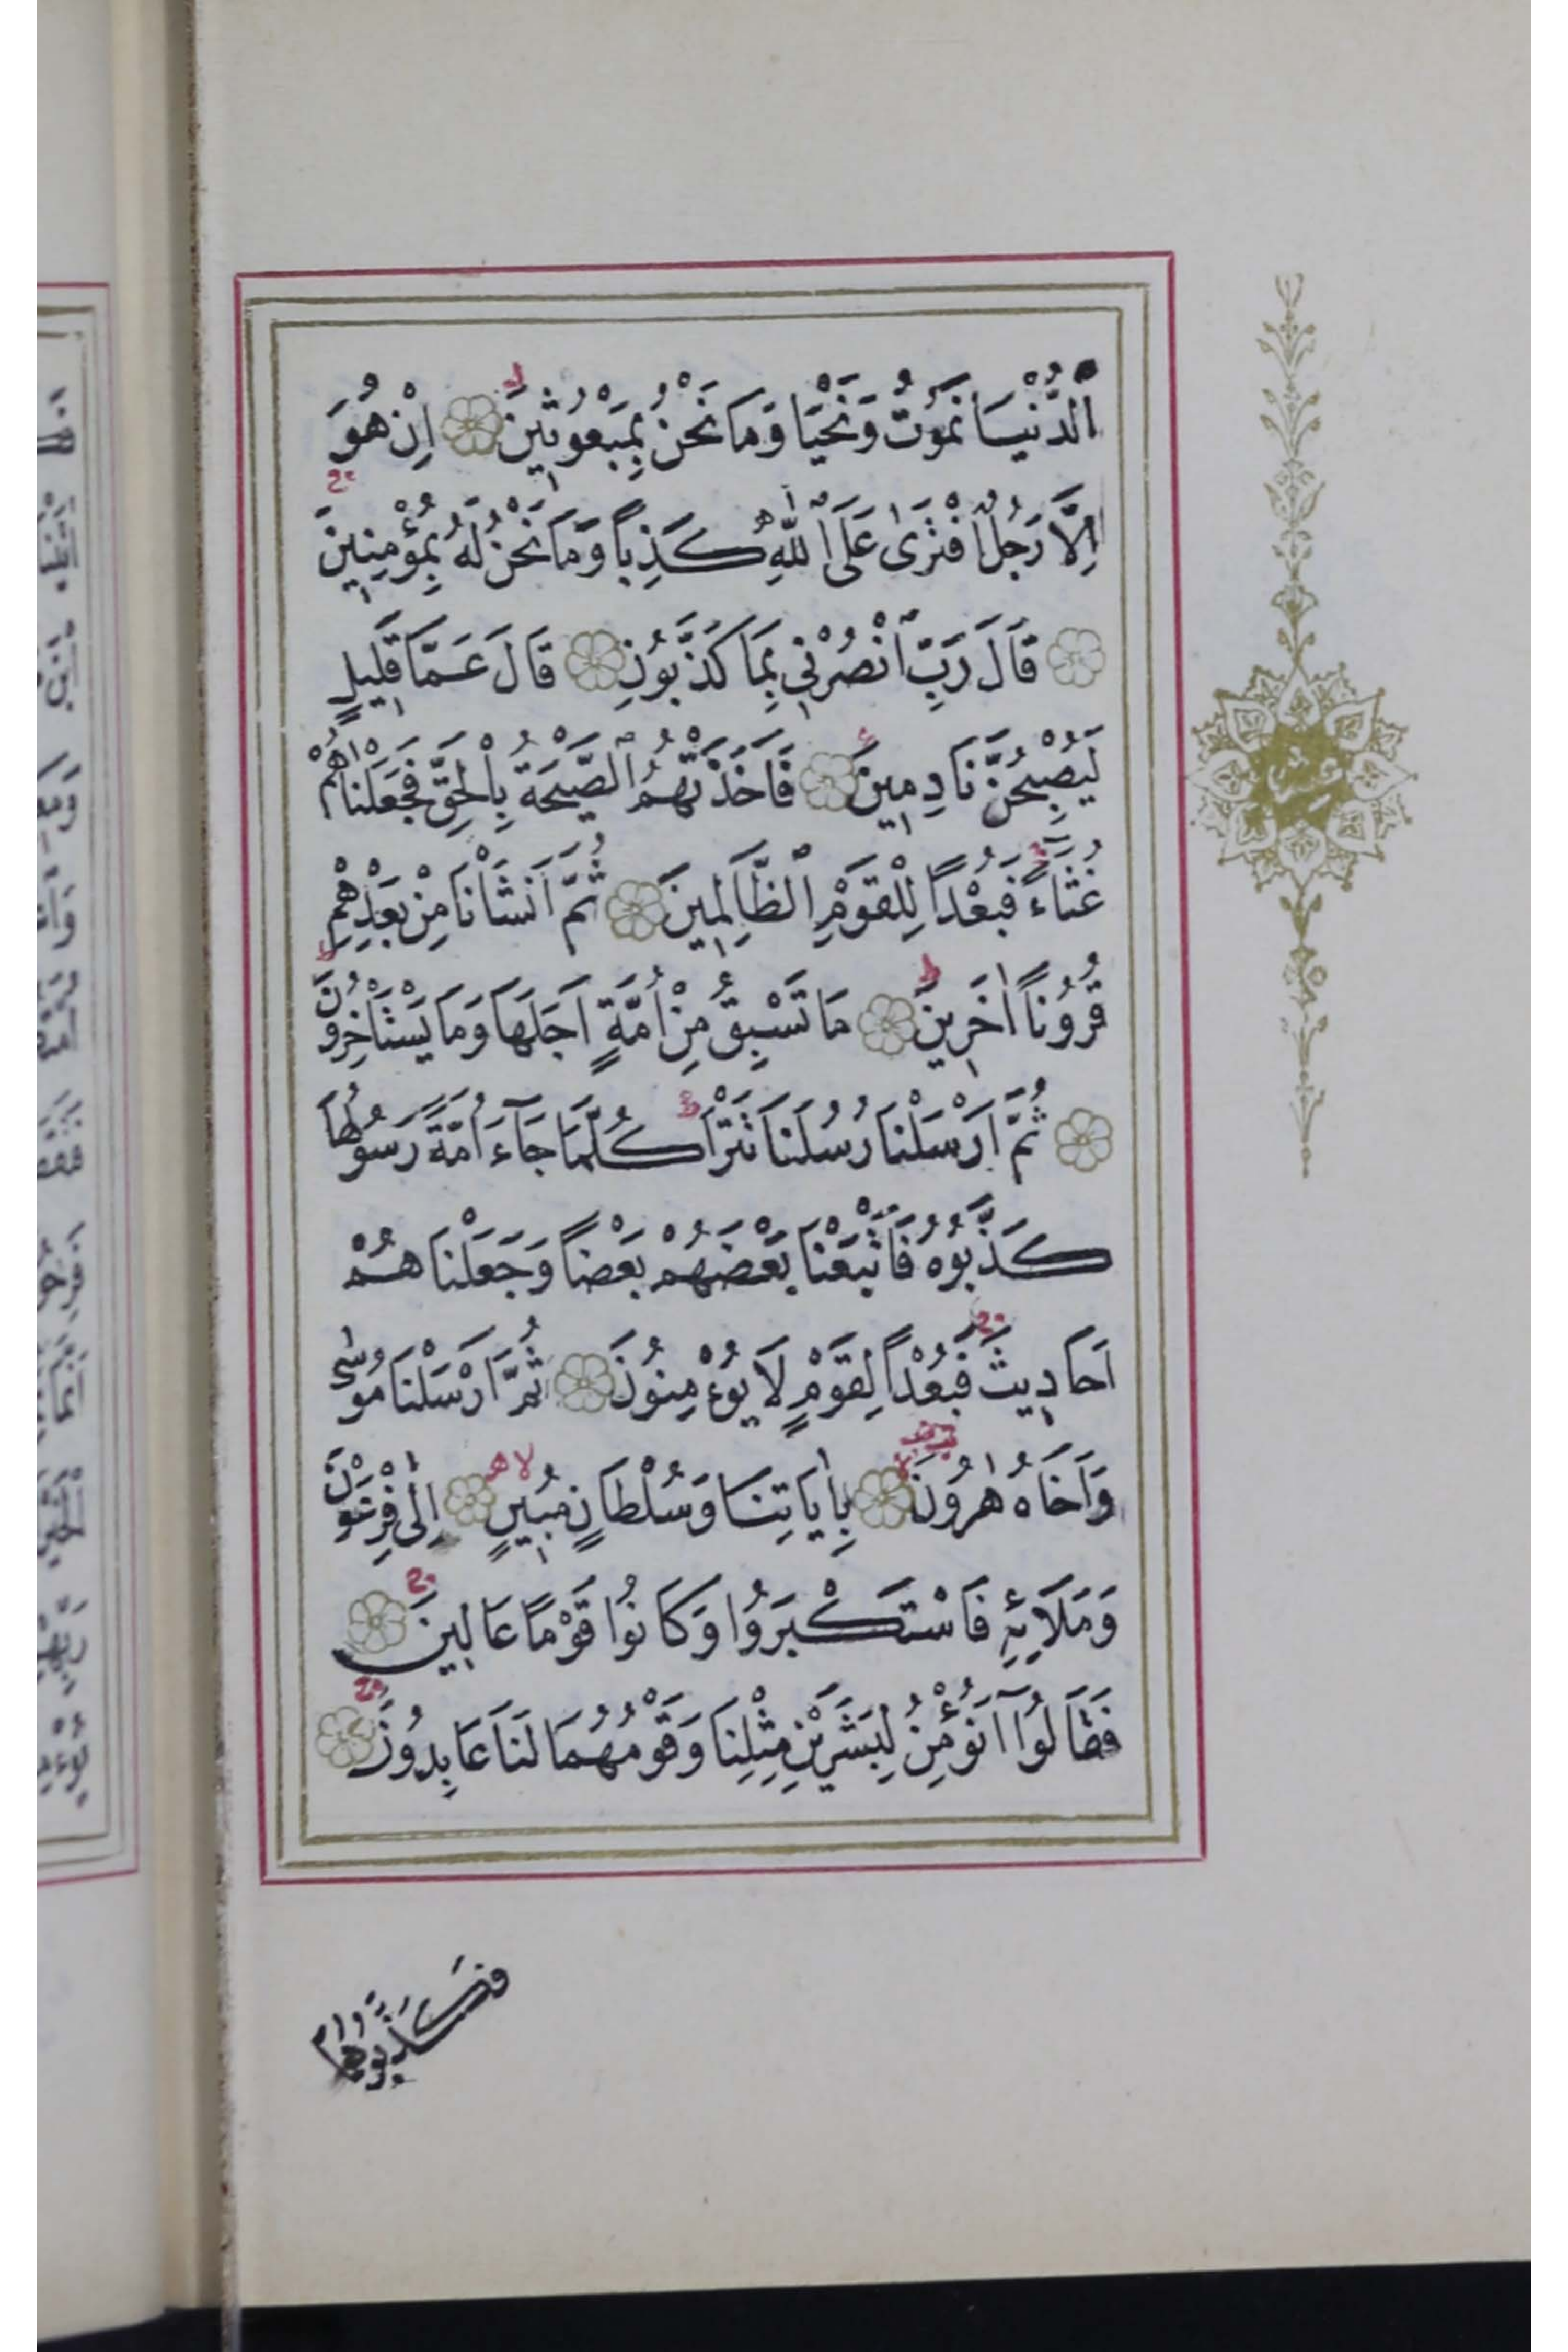 الدُّنْيَا نَمُوتُ وَنَحْيَا وَمَا نَحْنُ بِمَبْعُوثِينَ اِنْ هُوَ
اِلَّا رَجُلٌ افْتَرٰى عَلَى اللّٰهِ كَذِبًا وَمَا نَحْنُ لَهُ بِمُؤْمِنِينَ
قَالَ رَبِّ انْصُرْنِي بِمَا كَذَّبُونِ قَالَ عَمَّا قَلِيلٍ
لَيُصْبِحُنَّ نَادِمِينَ فَاَخَذَتْهُمُ الصَّيْحَةُ بِالْحَقِّ فَجَعَلْنَاهُمْ
غُثَاءً فَبُعْدًا لِلْقَوْمِ الظَّالِمِينَ ثُمَّ اَنْشَاْنَا مِنْ بَعْدِهِمْ
قُرُونًا اٰخَرِينَ مَا تَسْبِقُ مِنْ اُمَّةٍ اَجَلَهَا وَمَا يَسْتَاْخِرُونَ
ثُمَّ اَرْسَلْنَا رُسُلَنَا تَتْرَا كُلَّمَا جَآءَ اُمَّةً رَسُولُهَا
كَذَّبُوهُ فَاَتْبَعْنَا بَعْضَهُمْ بَعْضًا وَجَعَلْنَاهُمْ
اَحَادِيثَ فَبُعْدًا لِقَوْمٍ لَا يُؤْمِنُونَ ثُمَّ اَرْسَلْنَا مُوسٰى
وَاَخَاهُ هٰرُونَ بِاٰيَاتِنَا وَسُلْطَانٍ مُبِينٍ اِلٰى فِرْعَوْنَ
وَمَلَائِهِ فَاسْتَكْبَرُوا وَكَانُوا قَوْمًا عَالِينَ
فَقَالُوٓا اَنُؤْمِنُ لِبَشَرَيْنِ مِثْلِنَا وَقَوْمُهُمَا لَنَا عَابِدُونَ
فَكَذَّبُوهُمَا